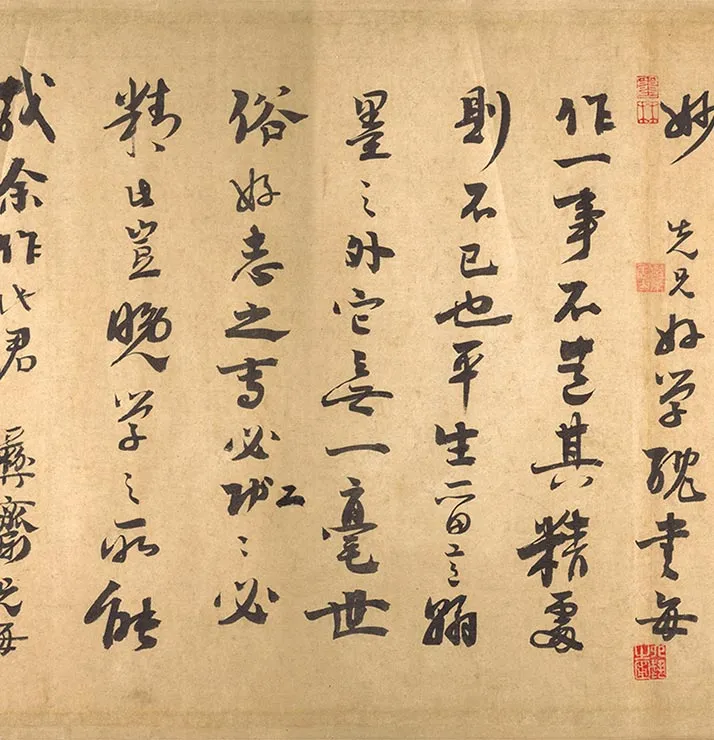 妙 先兄好学書每
作一事不造其精處
則不已也平生所留意翰
墨之外它無一毫世
俗好志之專必功工〻必
精此豈晚学之所能
哉余作此君 彝齋兄每